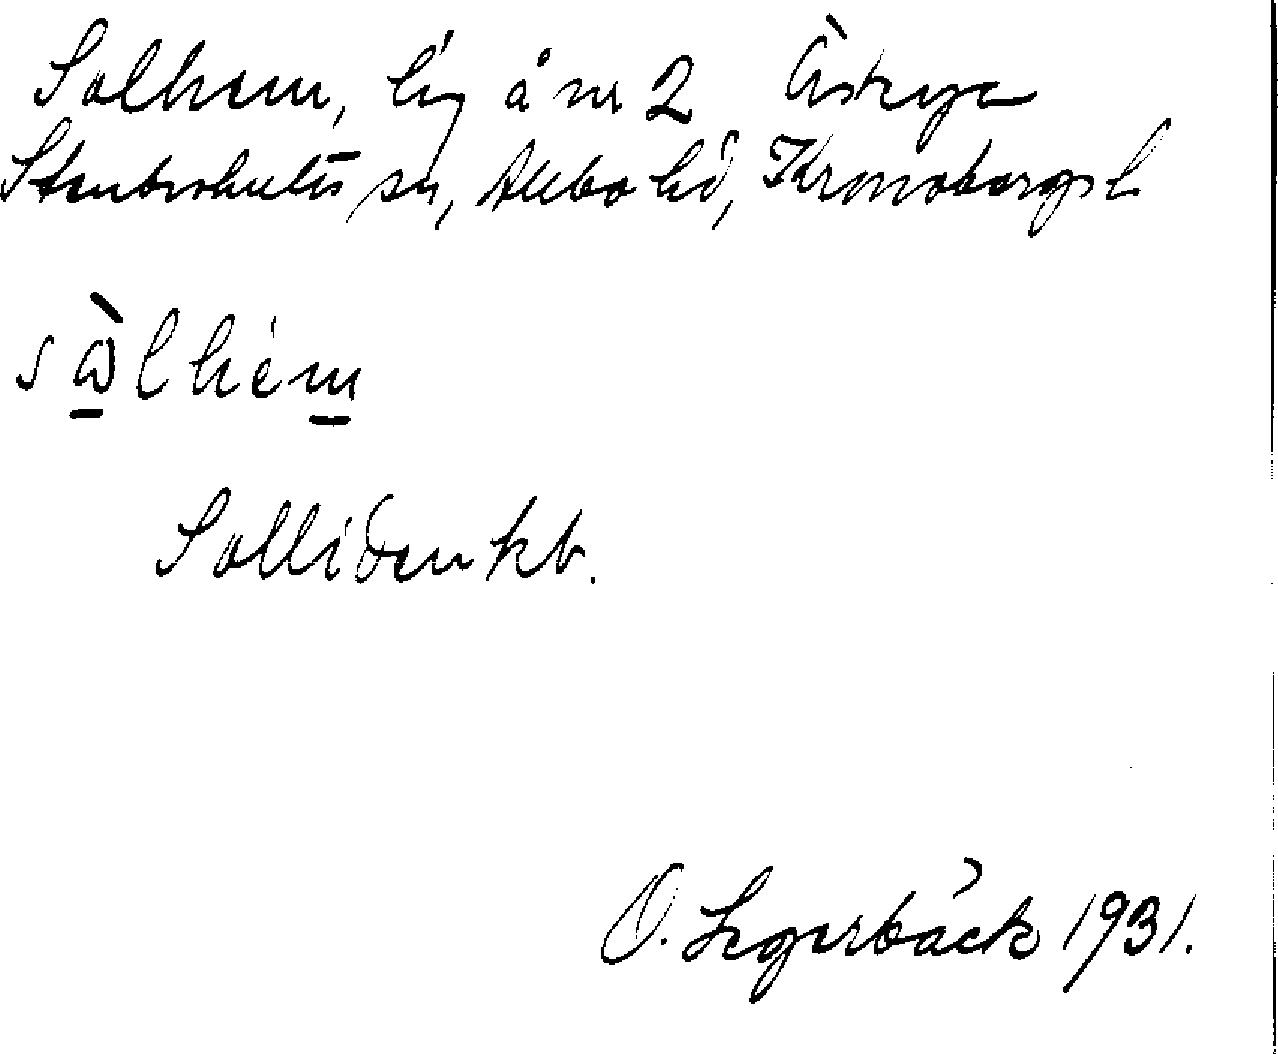 Solhem, lig å nr 2 Åstrya
Stenbrohults sn, Allbo hd, Kronobergs l
sὼlhèm
Solliden kb.
O. Segerbäck 1931.